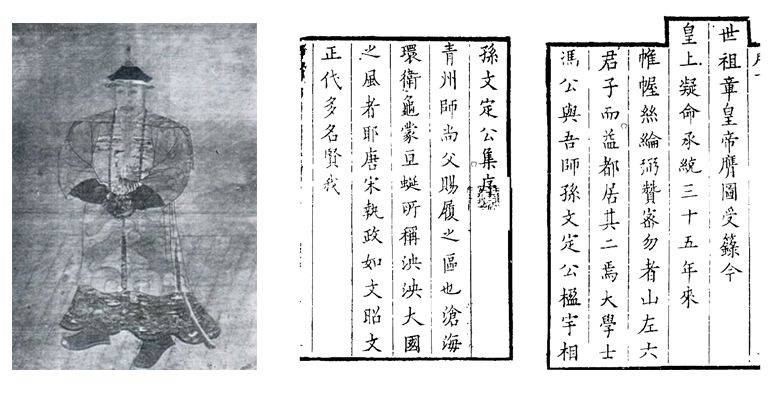 孫文定公集序
青州師尚父賜履之區也滄海
環衛龜蒙亘蜒所稱泱泱大國
之風者耶唐宋執政如文昭文
正代多名賢我
世祖章皇帝膺圖受籙今
皇上凝命承統三十五年來
帷幄絲綸弼贊密勿者山左六
君子而益都居其二焉大學士
馮公與吾師孫文定公楹宇相